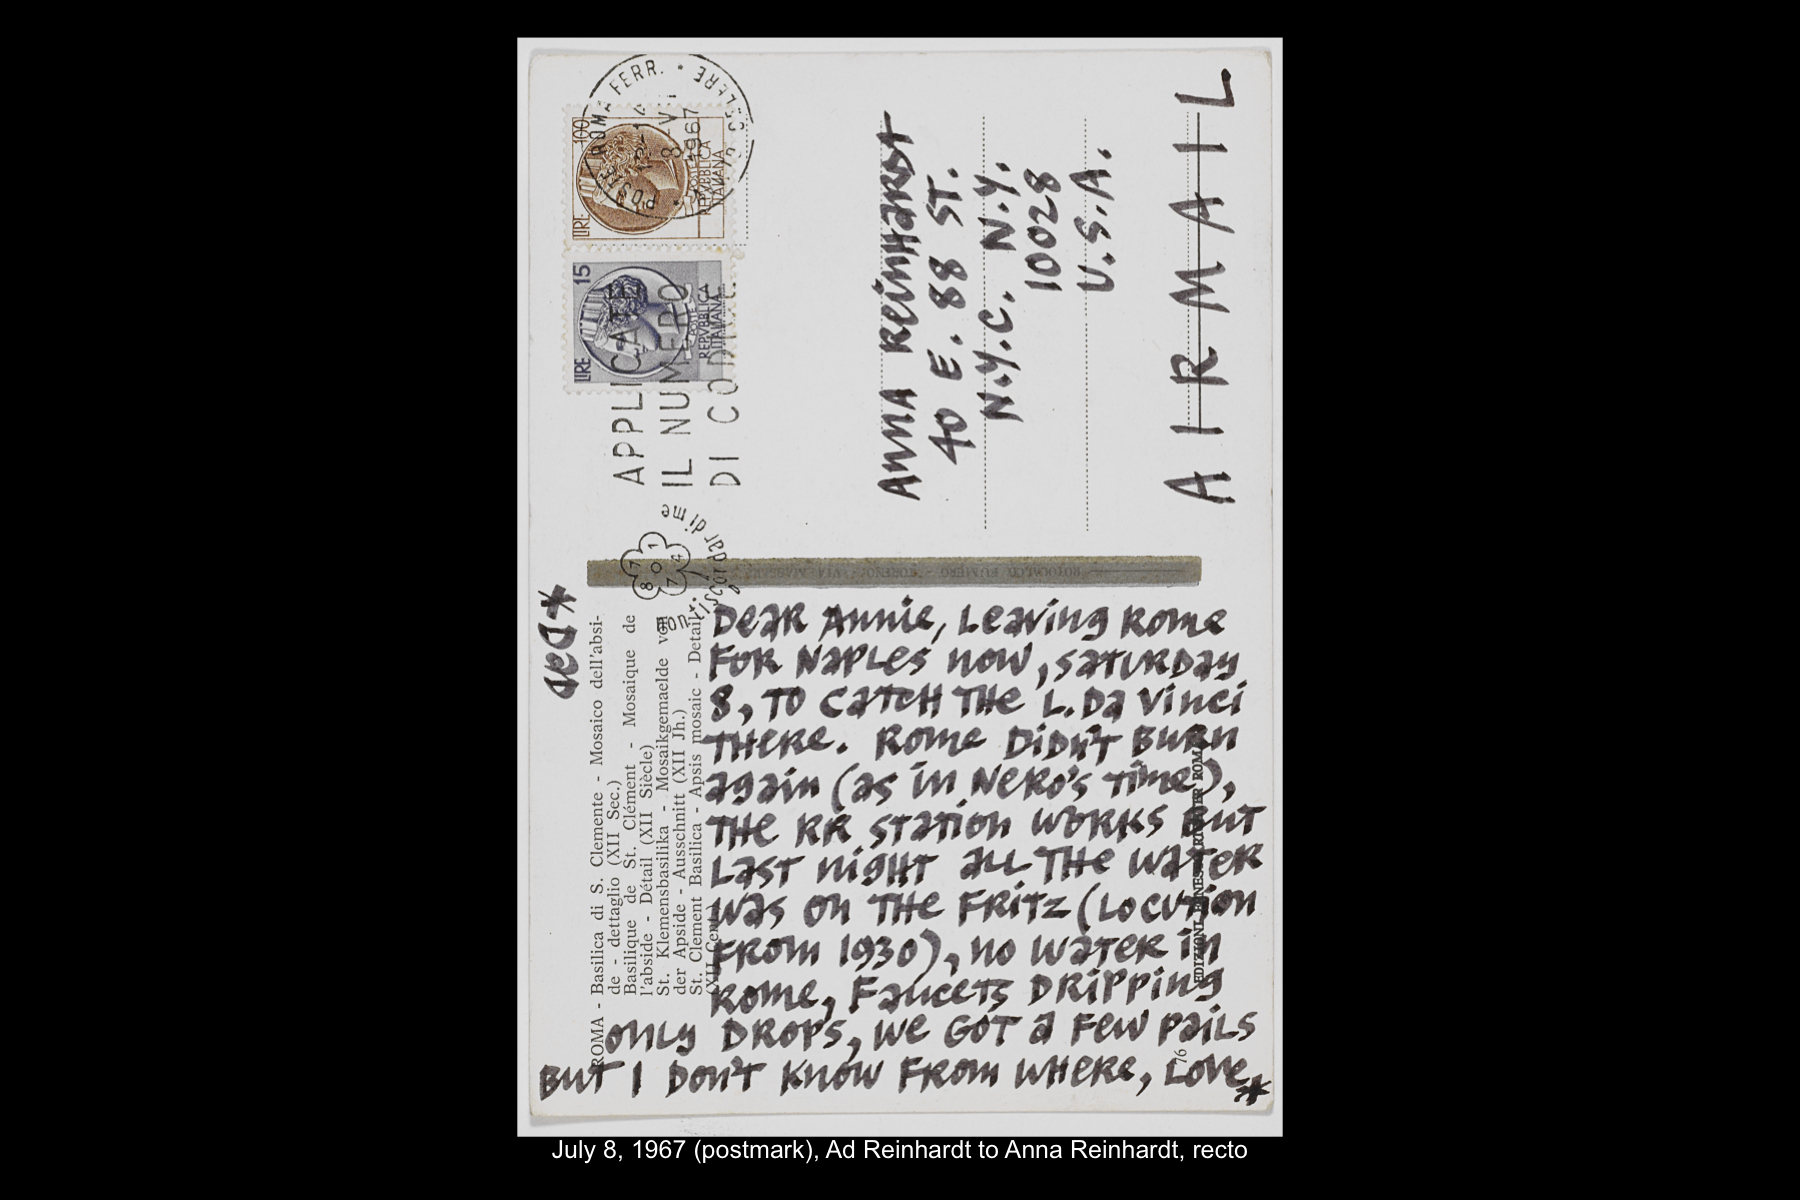 POSTE ROMA FERR. • CELERE
12-14
8 VII
1967
LIRE 100
POSTE
REPVBBLICA
ITALIANA
LIRE 15
POSTE
REPVBBLICA
ITALIANA
APPLICATE
IL NUMERO
DI CODICE
non ti scordar di me
ANNA REINHARDT
40 E. 88 ST.
N.Y.C. N.Y.
10028
U.S.A.
AIRMAIL
ROTOCALCO FUMERO -
ROMA - Basilica di S. Clemente - Mosaico dell'absi-
de - dettaglio (XII Sec.)
Basilique de St. Clément - Mosaique de
l'abside - Détail (XII Siècle)
St. Klemensbasilika - Mosaikgemaelde von
der Apside - Ausschnitt (XII Jh.)
St. Clement Basilica - Apsis mosaic - Detail
(XII Cent.)
DEAR ANNIE, LEAVING ROME
FOR NAPLES NOW, SATURDAY
8, TO CATCH THE L. DA VINCI
THERE. ROME DIDN'T BURN
AGAIN (AS IN NERO'S TIME),
THE RR STATION WORKS BUT
LAST NIGHT ALL THE WATER
WAS ON THE FRITZ (LOCUTION
FROM 1930), NO WATER IN
ROME, FAUCETS DRIPPING
ONLY DROPS, WE GOT A FEW PAILS
BUT I DON'T KNOW FROM WHERE, LOVE,*
*DAD
76
July 8, 1967 (postmark), Ad Reinhardt to Anna Reinhardt, recto